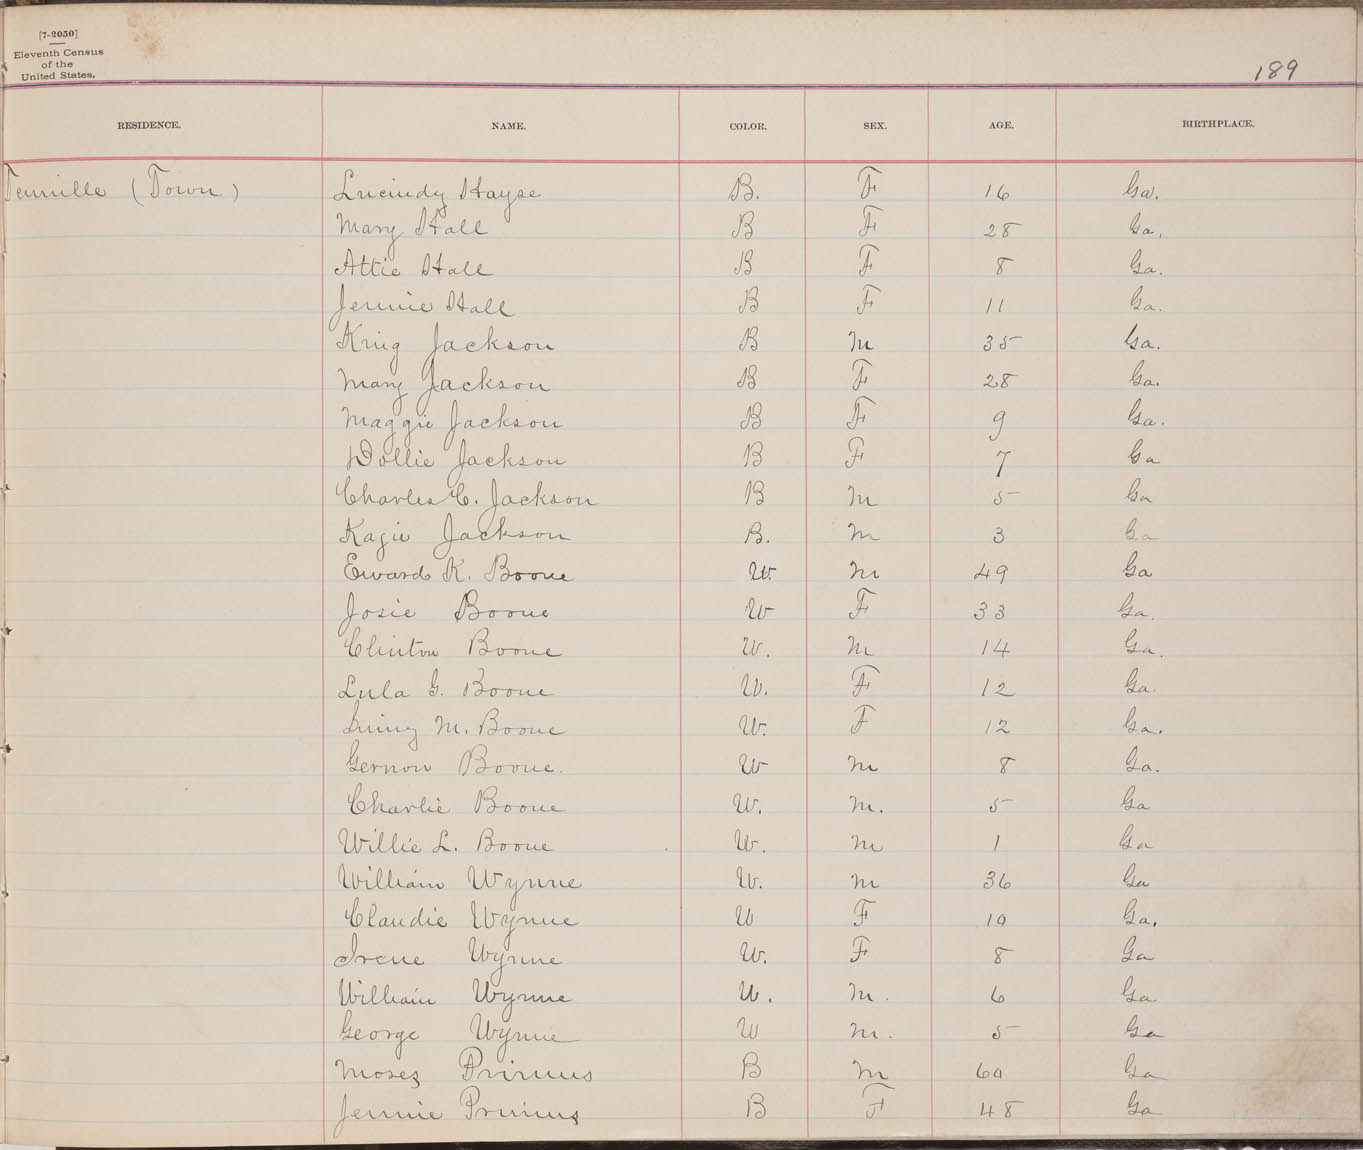 [7-2050]
Eleventh Census
of the
United States.
189
RESIDENCE. NAME. COLOR. SEX. AGE. BIRTHPLACE.
Tennille (Town) Lucindy Hayse B. F 16 Ga.
Mary Hall B F 28 Ga.
Attie Hall B F 8 Ga.
Jennie Hall B F 11 Ga.
King Jackson B M 35 Ga.
Mary Jackson B F 28 Ga.
Maggie Jackson B F 9 Ga.
Dollie Jackson B F 7 Ga
Charles C. Jackson B M 5 Ga
Jackson B. M 3 Ga
Eward K. Boone W. M 49 Ga
Josie Boone W F 33 Ga.
Clinton Boone W. M 14 Ga.
Lula G. Boone W. F 12 Ga.
M. Boone W. F 12 Ga.
Gernon Boone. W M 8 Ga.
Charlie Boone W. M. 5 Ga
Willie L. Boone W. M 1 Ga
William Wynne W. M 36 Ga
Claudie Wynne W F Ga.
Irene Wynne W. F 8 Ga
William Wynne W. M. 6 Ga
George Wynne W M. 5 Ga
Moses Primus B M Ga
Jennie Primus B F 48 Ga